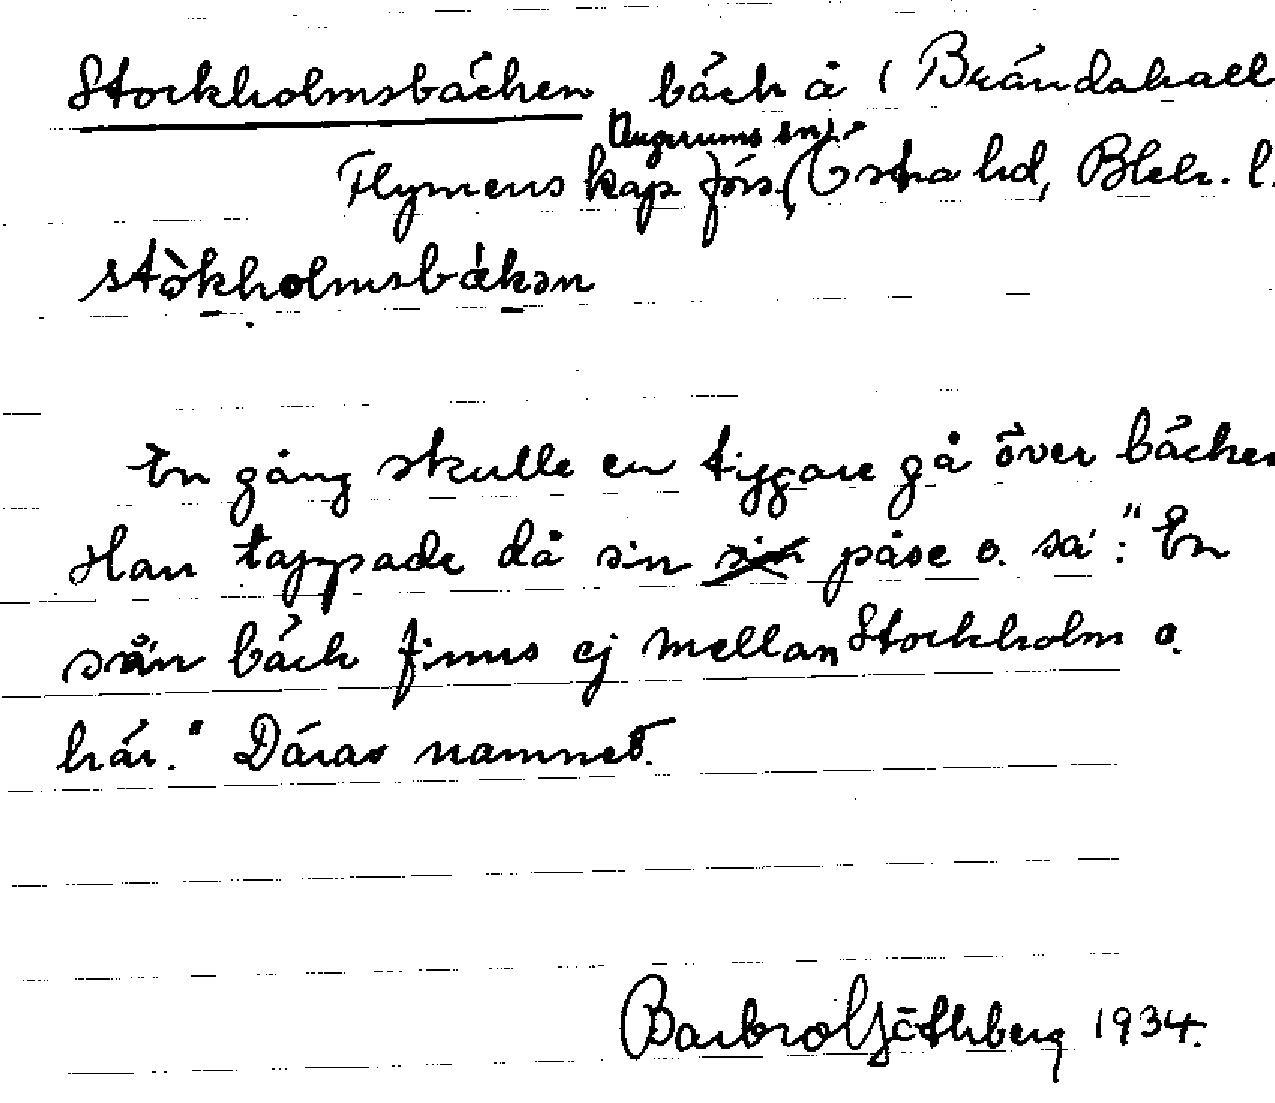 Stockholmsbäcken bäck å i Brändahall
Augerums sn,
Flymens kap förs. Östra hd, Blek. l.
stòkholmsbäkən
En gång skulle en tiggare gå över bäcken
Han tappade då sin påse o. sa: "En
sån bäck finns ej mellan Stockholm o.
här." Därav namnet.
Barbro Göthberg 1934.